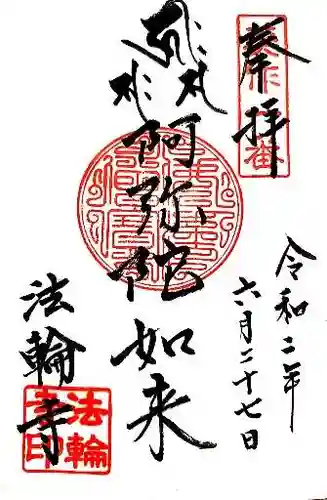 奉拝
令和二年
六月二十七日
阿弥陀如来
法輪寺
法輪
寺印